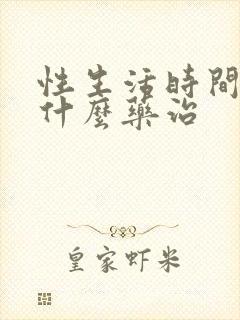 性生活時間
什麼藥治
皇家虾米